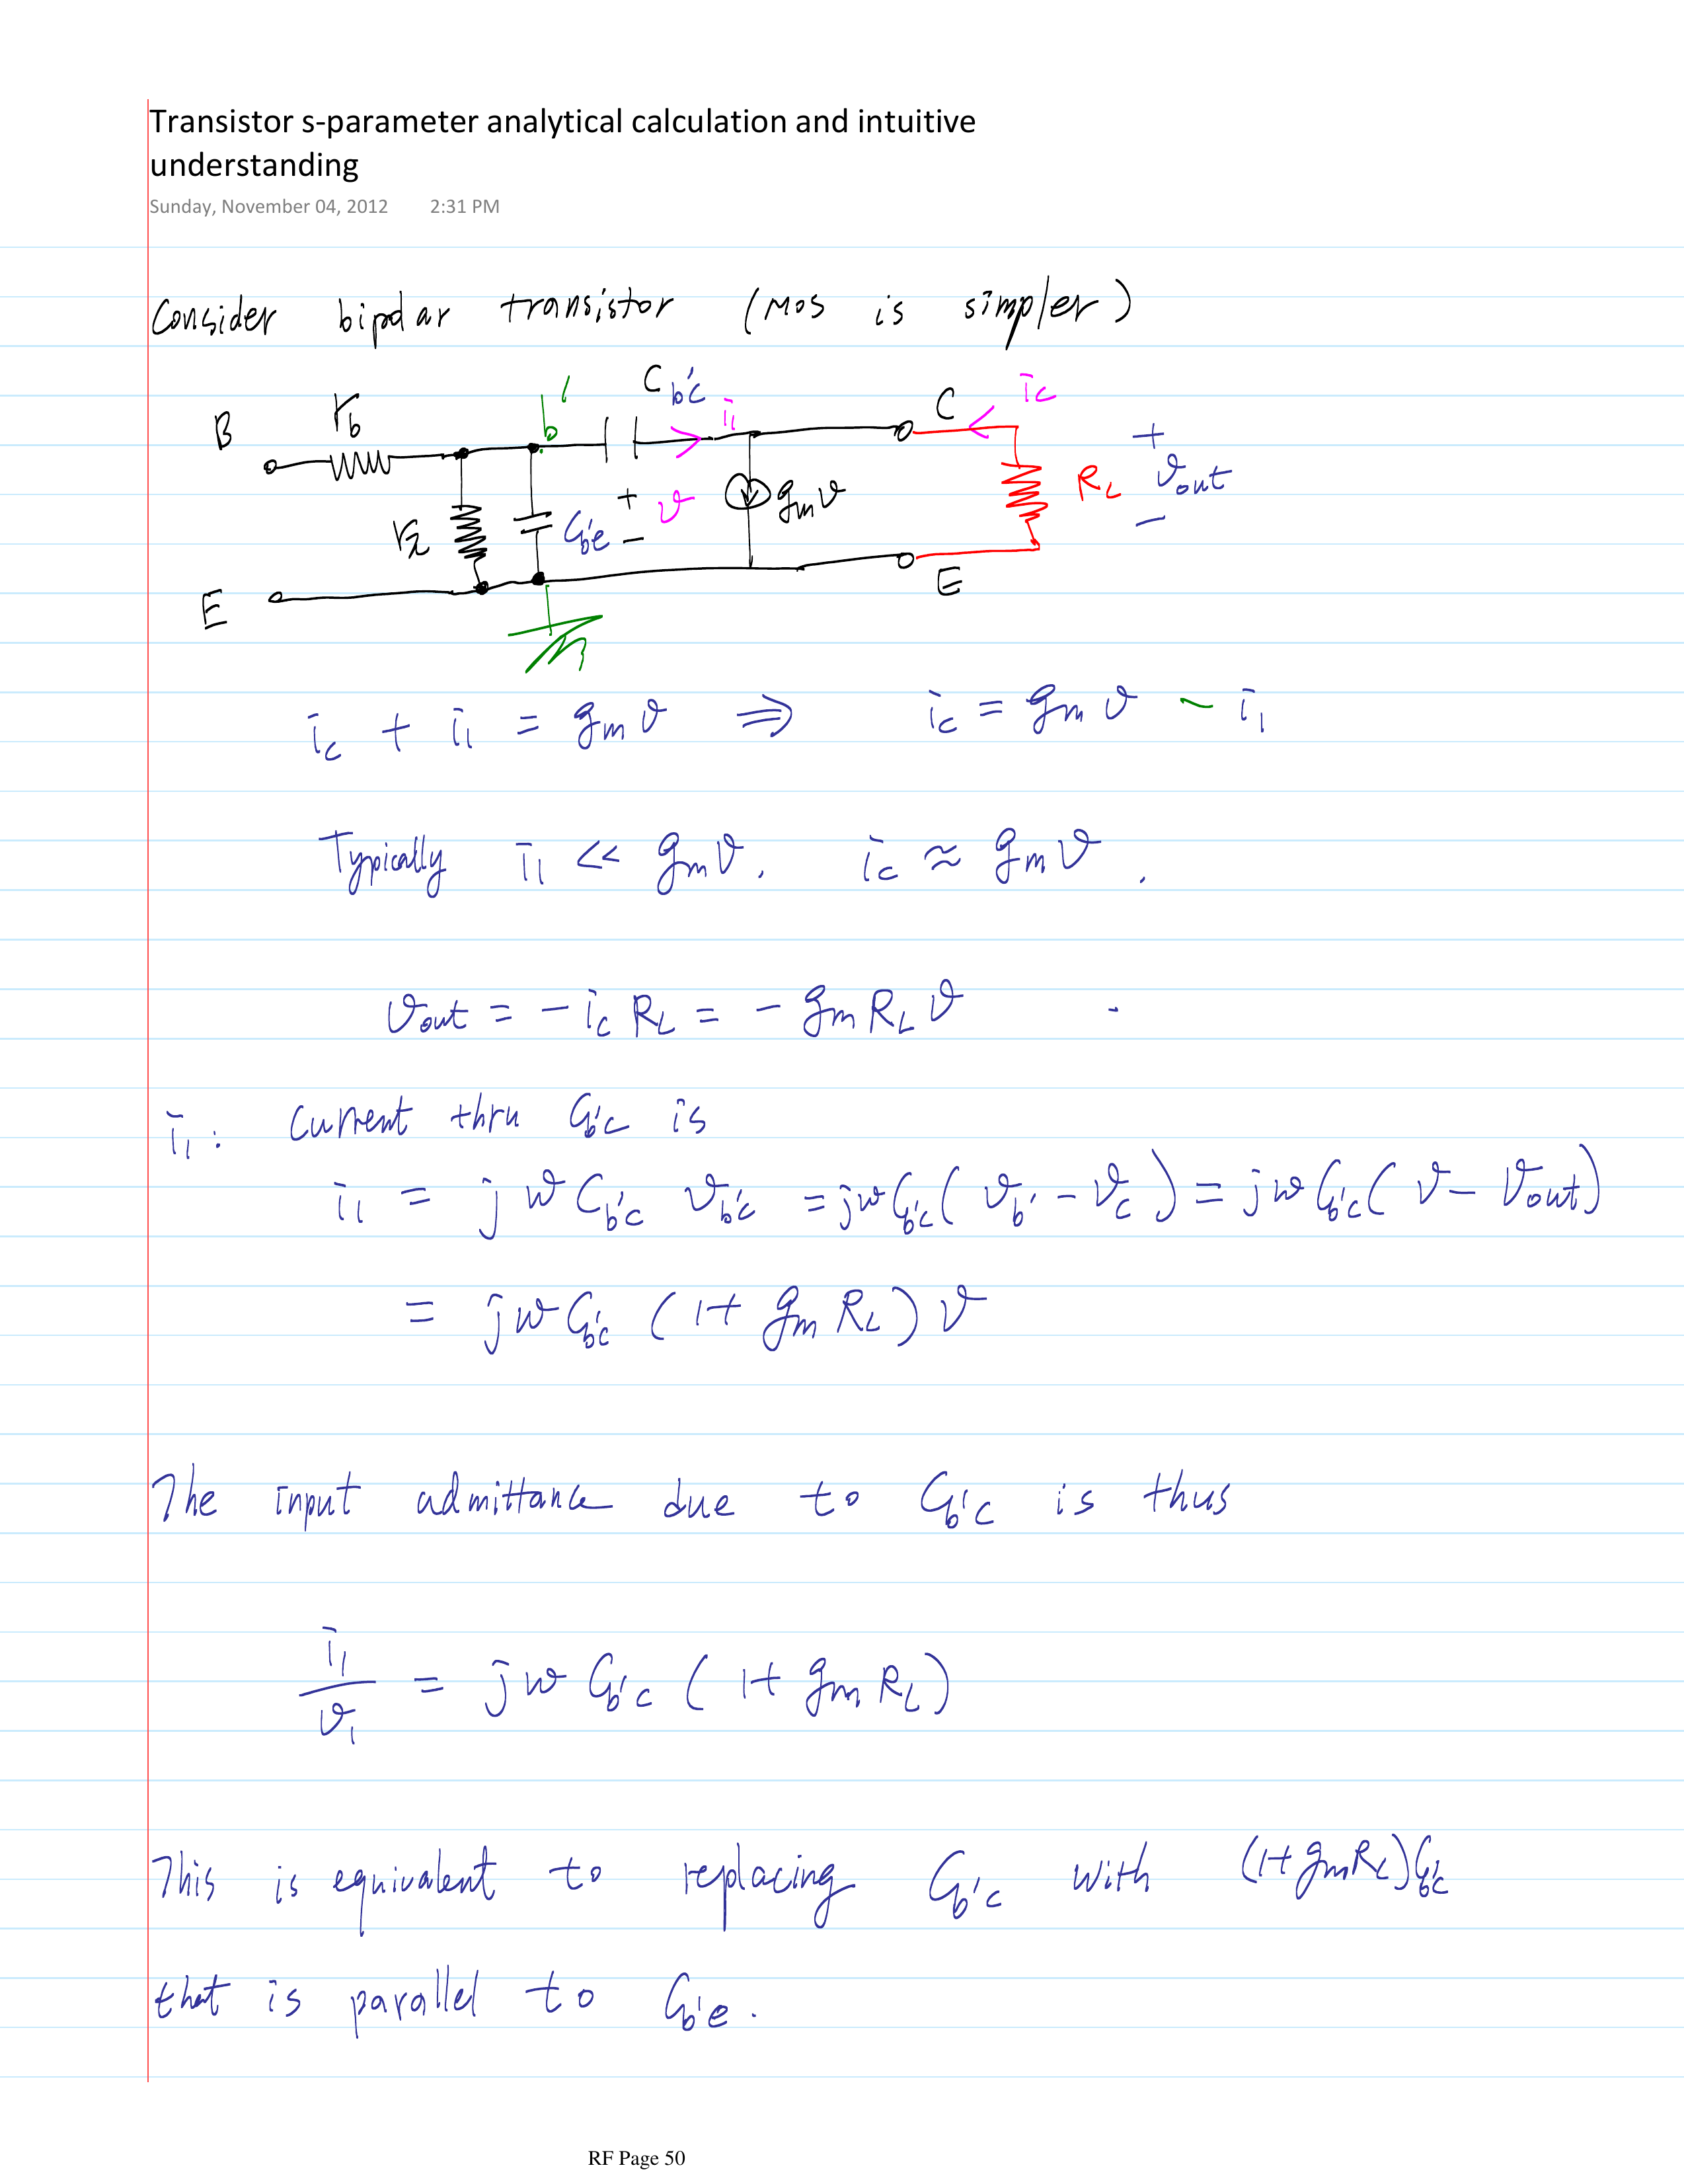 Transistor s-parameter analytical calculation and intuitive
understanding
Sunday, November 04, 2012 2:31 PM
Consider bipolar transistor (MOS is simpler)
B r_b b' C_b'c i_1 C i_c
r_π C_b'e + v − g_m v R_L + v_out −
E E
i_c + i_1 = g_m v ⇒ i_c = g_m v − i_1
Typically i_1 << g_m v, i_c ≈ g_m v.
v_out = − i_c R_L = − g_m R_L v
i_1: Current thru C_b'c is
i_1 = jω C_b'c v_b'c = jω C_b'c (v_b' − v_c) = jω C_b'c (v − v_out)
= jω C_b'c (1 + g_m R_L) v
The input admittance due to C_b'c is thus
i_1 / v_1 = jω C_b'c (1 + g_m R_L)
This is equivalent to replacing C_b'c with (1 + g_m R_L) C_b'c
that is parallel to C_b'e.
RF Page 50